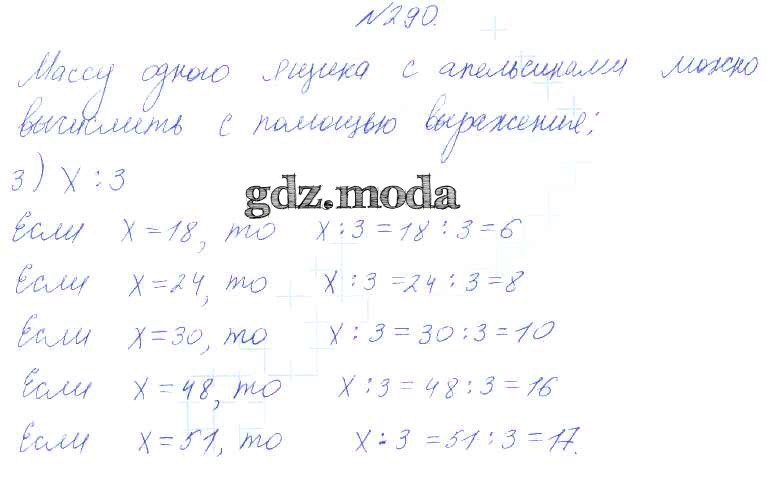 №290.
Массу одного ящика с апельсинами можно
вычислить с помощью выражение:
3) x : 3
gdz.moda
Если x = 18, то x : 3 = 18 : 3 = 6
Если x = 24, то x : 3 = 24 : 3 = 8
Если x = 30, то x : 3 = 30 : 3 = 10
Если x = 48, то x : 3 = 48 : 3 = 16
Если x = 51, то x : 3 = 51 : 3 = 17.